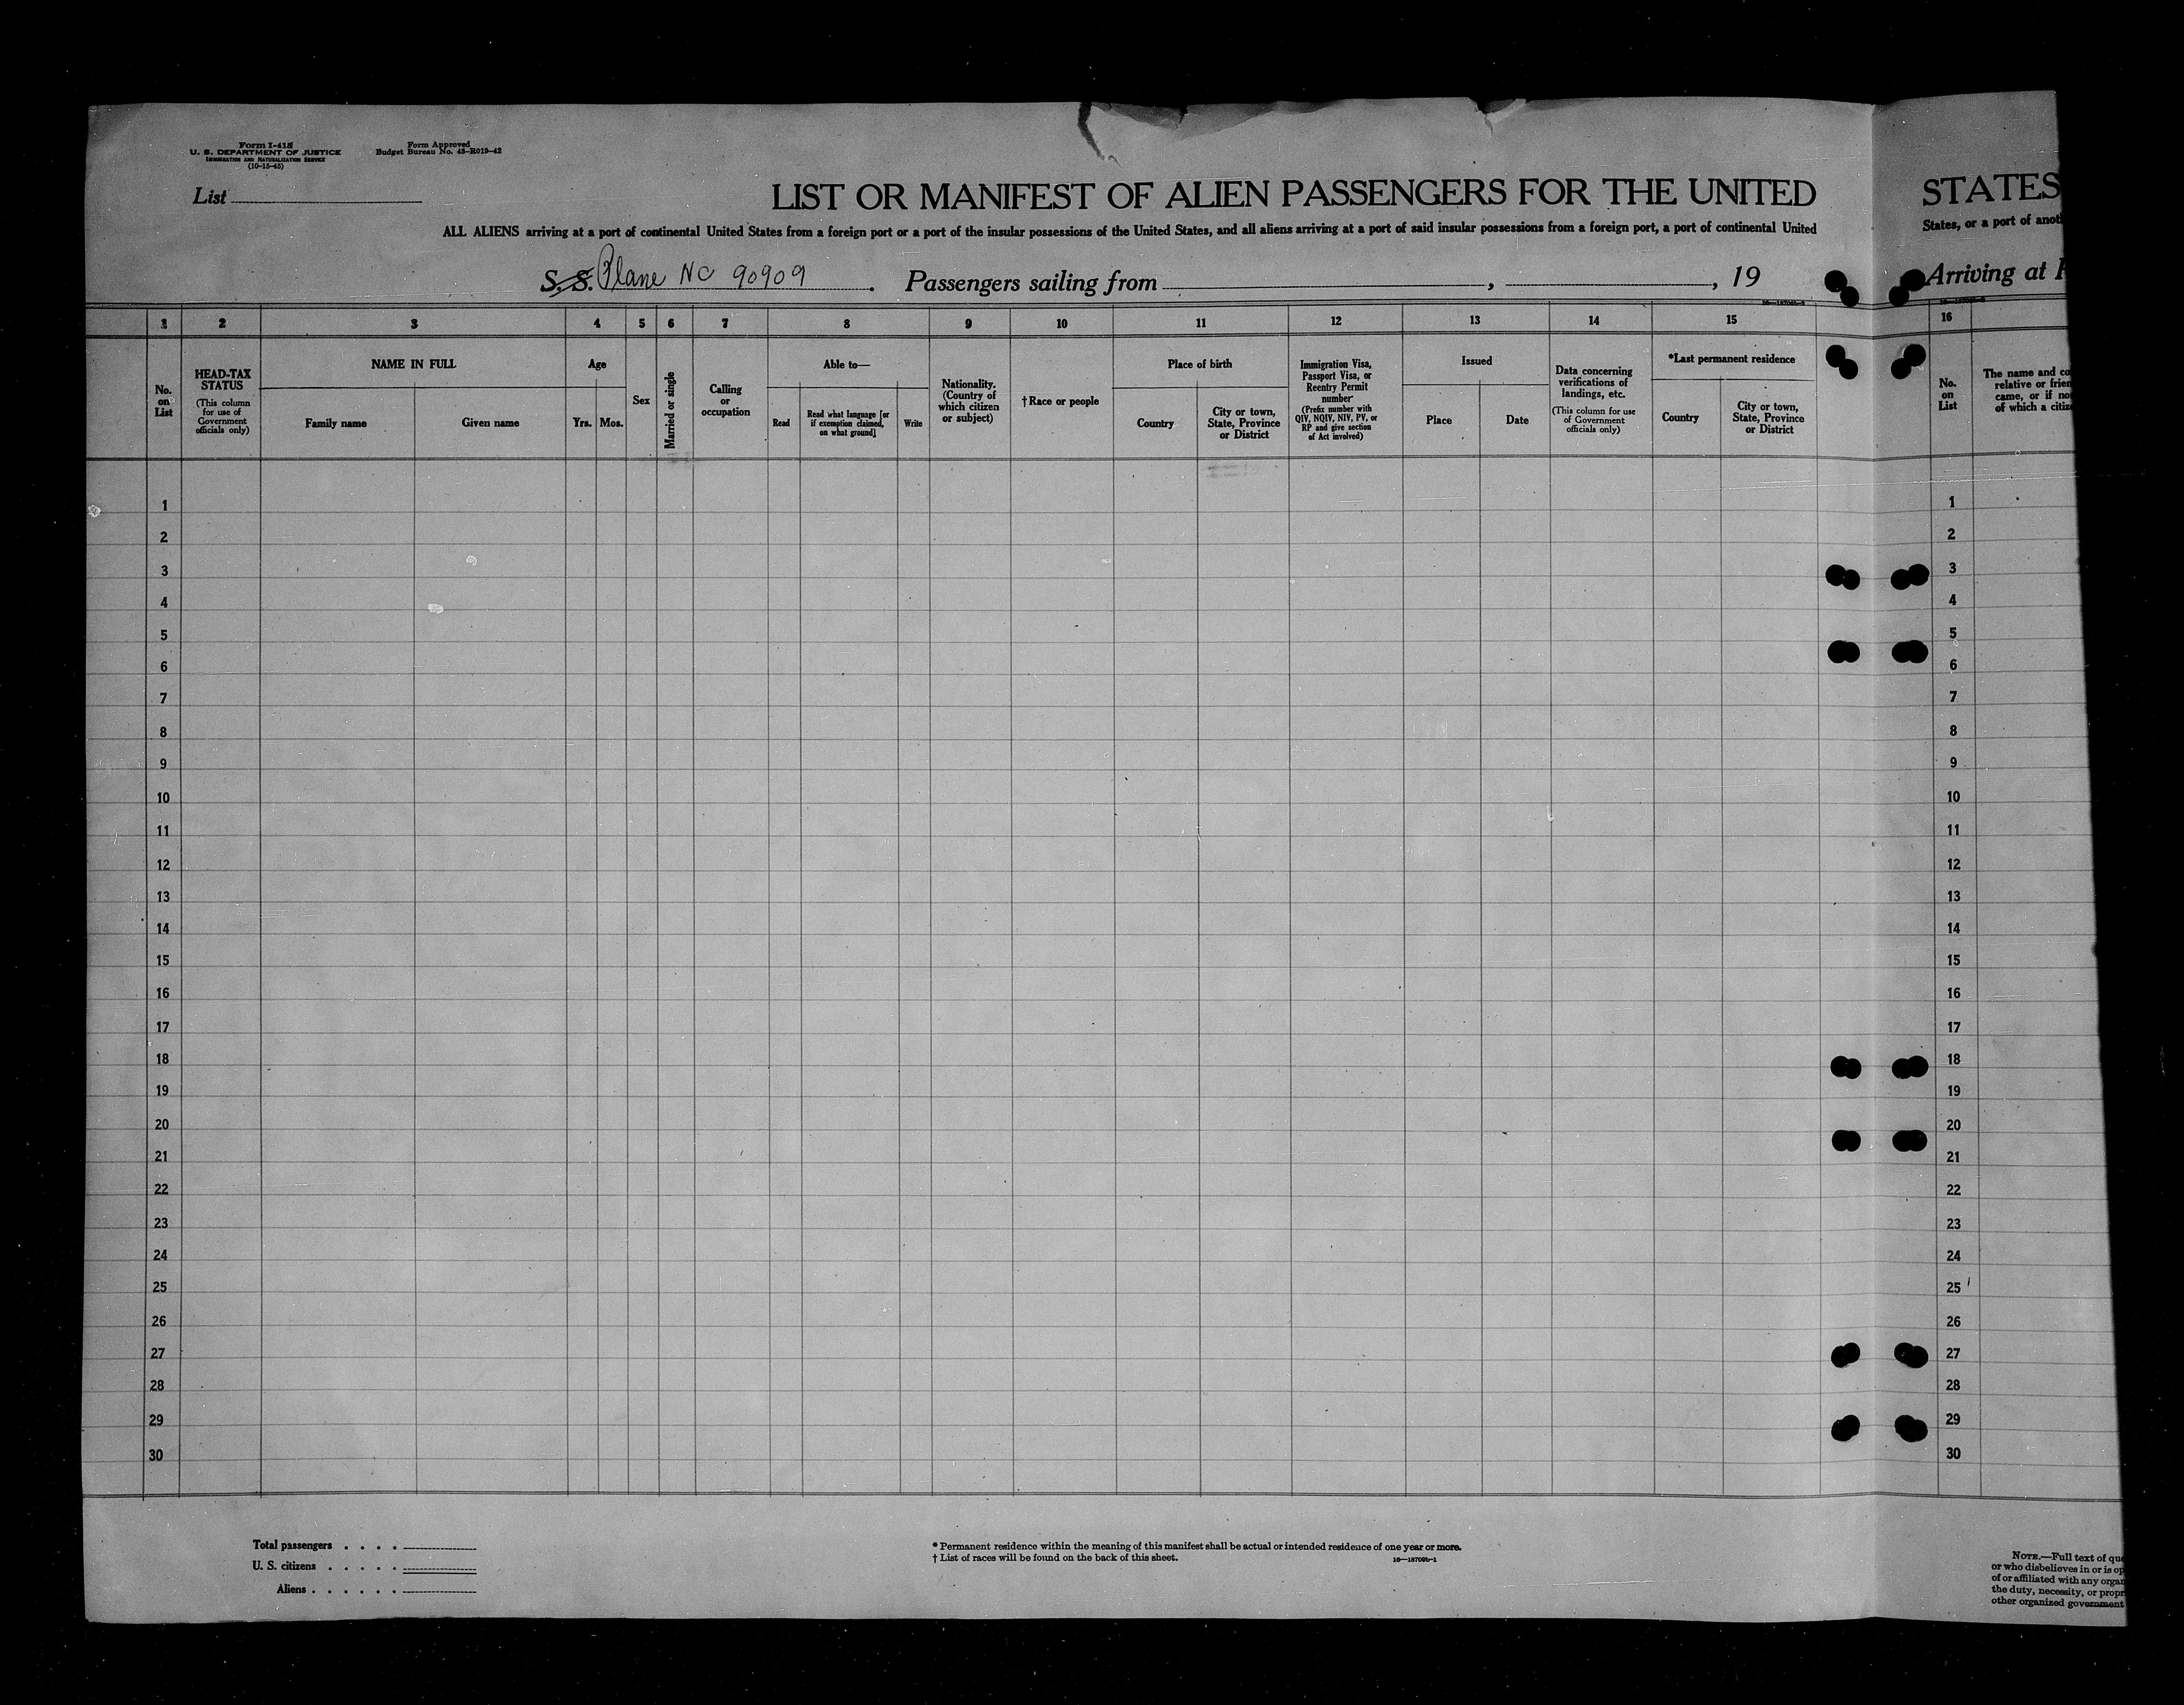 Form I-415
U. S. DEPARTMENT OF JUSTICE
IMMIGRATION AND NATURALIZATION SERVICE
(10-15-45)
Form Approved
Budget Bureau No. 43-R019-42
List
LIST OR MANIFEST OF ALIEN PASSENGERS FOR THE UNITED
STATES
ALL ALIENS arriving at a port of continental United States from a foreign port or a port of the insular possessions of the United States, and all aliens arriving at a port of said insular possessions from a foreign port, a port of continental United
States, or a port of anot
S. S. Plane NC 90909 . Passengers sailing from , , 19
Arriving at
1 2 3 4 5 6 7 8 9 10 11 12 13 14 15
16
No.
on
List
HEAD-TAX
STATUS
(This column
for use of
Government
officials only)
NAME IN FULL
Family name
Given name
Age
Yrs.
Mos.
Sex
Married or single
Calling
or
occupation
Able to—
Read
Read what language [or
if exemption claimed,
on what ground]
Write
Nationality.
(Country of
which citizen
or subject)
†Race or people
Place of birth
Country
City or town,
State, Province
or District
Immigration Visa,
Passport Visa, or
Reentry Permit
number
(Prefix number with
QIV, NQIV, NIV, PV, or
RP and give section
of Act involved)
Issued
Place
Date
Data concerning
verifications of
landings, etc.
(This column for use
of Government
officials only)
*Last permanent residence
Country
City or town,
State, Province
or District
No.
on
List
The name and co
relative or frien
came, or if no
of which a citiz
1 1
2 2
3 3
4 4
5 5
6 6
7 7
8 8
9 9
10 10
11 11
12 12
13 13
14 14
15 15
16 16
17 17
18 18
19 19
20 20
21 21
22 22
23 23
24 24
25 25
26 26
27 27
28 28
29 29
30 30
Total passengers . . . .
U. S. citizens . . . . .
Aliens . . . . . .
* Permanent residence within the meaning of this manifest shall be actual or intended residence of one year or more.
† List of races will be found on the back of this sheet.
16—18709b-1
NOTE.—Full text of que
or who disbelieves in or is op
of or affiliated with any organ
the duty, necessity, or propr
other organized government